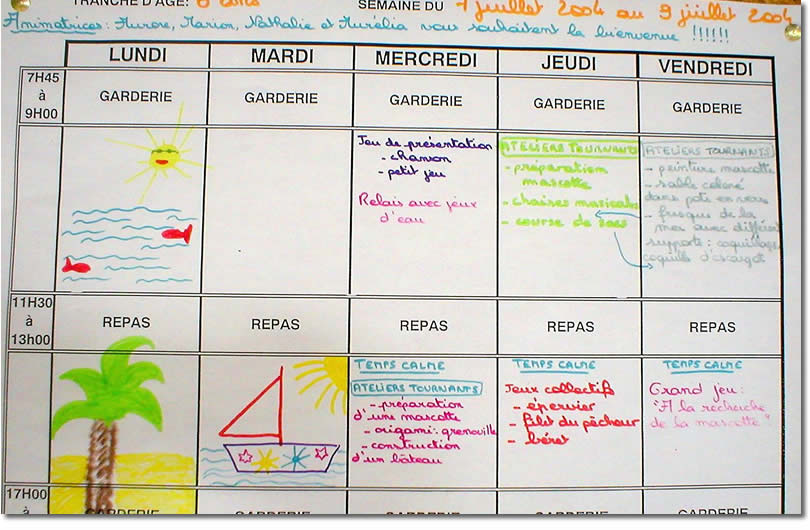 TRANCHE D'AGE: 6 ans SEMAINE DU 7 juillet 2004 au 9 juillet 2004
Animatrices: Aurore, Marion, Nathalie et Aurélia vous souhaitent la bienvenue !!!!!!
LUNDI MARDI MERCREDI JEUDI VENDREDI
7H45
à
9H00
GARDERIE GARDERIE GARDERIE GARDERIE GARDERIE
Jeu de présentation
- chanson
- petit jeu
Relais avec jeux
d'eau
ATELIERS TOURNANTS
- préparation
mascotte
- chaises musicales
- course de sacs
ATELIERS TOURNANTS
- peinture mascotte
- sable coloré
dans pots en verre
- fresque de la
mer avec différents
supports: coquillages,
coquilles d'escargot
11H30
à
13h00
REPAS REPAS REPAS REPAS REPAS
TEMPS CALME
ATELIERS TOURNANTS
- préparation
d'une mascotte
- origami: grenouille
- construction
d'un bâteau
TEMPS CALME
Jeux collectifs
- épervier
- filet du pêcheur
- béret
TEMPS CALME
Grand jeu:
"A la recherche
de la mascotte"
17H00
à
GARDERIE GARDERIE GARDERIE GARDERIE GARDERIE